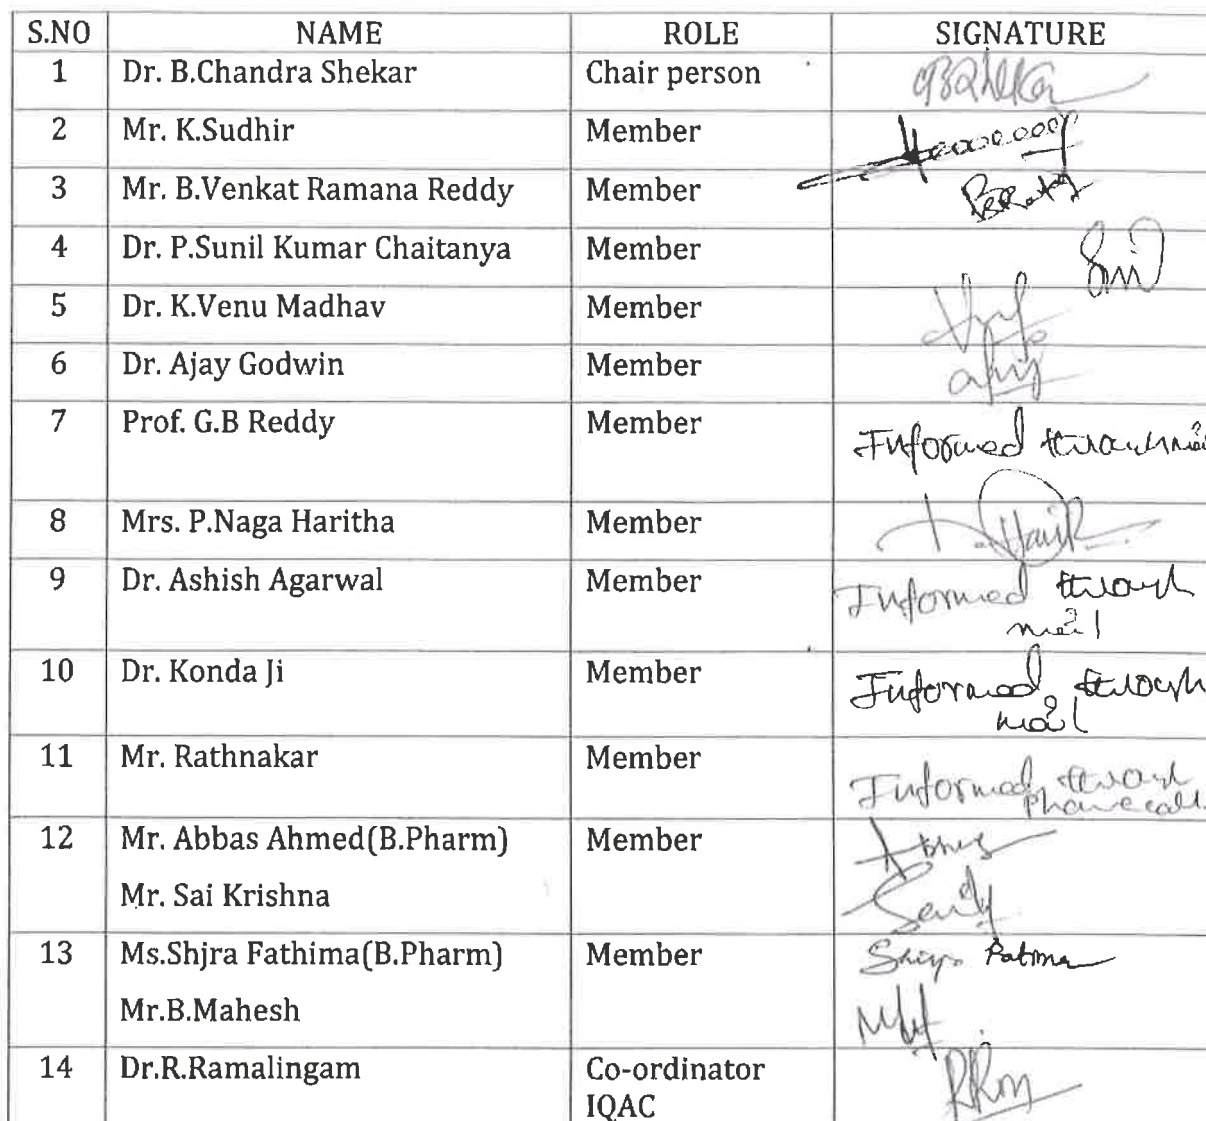 S.NO NAME ROLE SIGNATURE
1 Dr. B.Chandra Shekar Chair person
2 Mr. K.Sudhir Member
3 Mr. B.Venkat Ramana Reddy Member
4 Dr. P.Sunil Kumar Chaitanya Member
5 Dr. K.Venu Madhav Member
6 Dr. Ajay Godwin Member
7 Prof. G.B Reddy Member Informed through mail
8 Mrs. P.Naga Haritha Member
9 Dr. Ashish Agarwal Member Informed through
mail
10 Dr. Konda Ji Member Informed through
mail
11 Mr. Rathnakar Member Informed through
Phone call
12 Mr. Abbas Ahmed(B.Pharm) Member
Mr. Sai Krishna
13 Ms.Shjra Fathima(B.Pharm) Member Fatima
Mr.B.Mahesh
14 Dr.R.Ramalingam Co-ordinator
IQAC